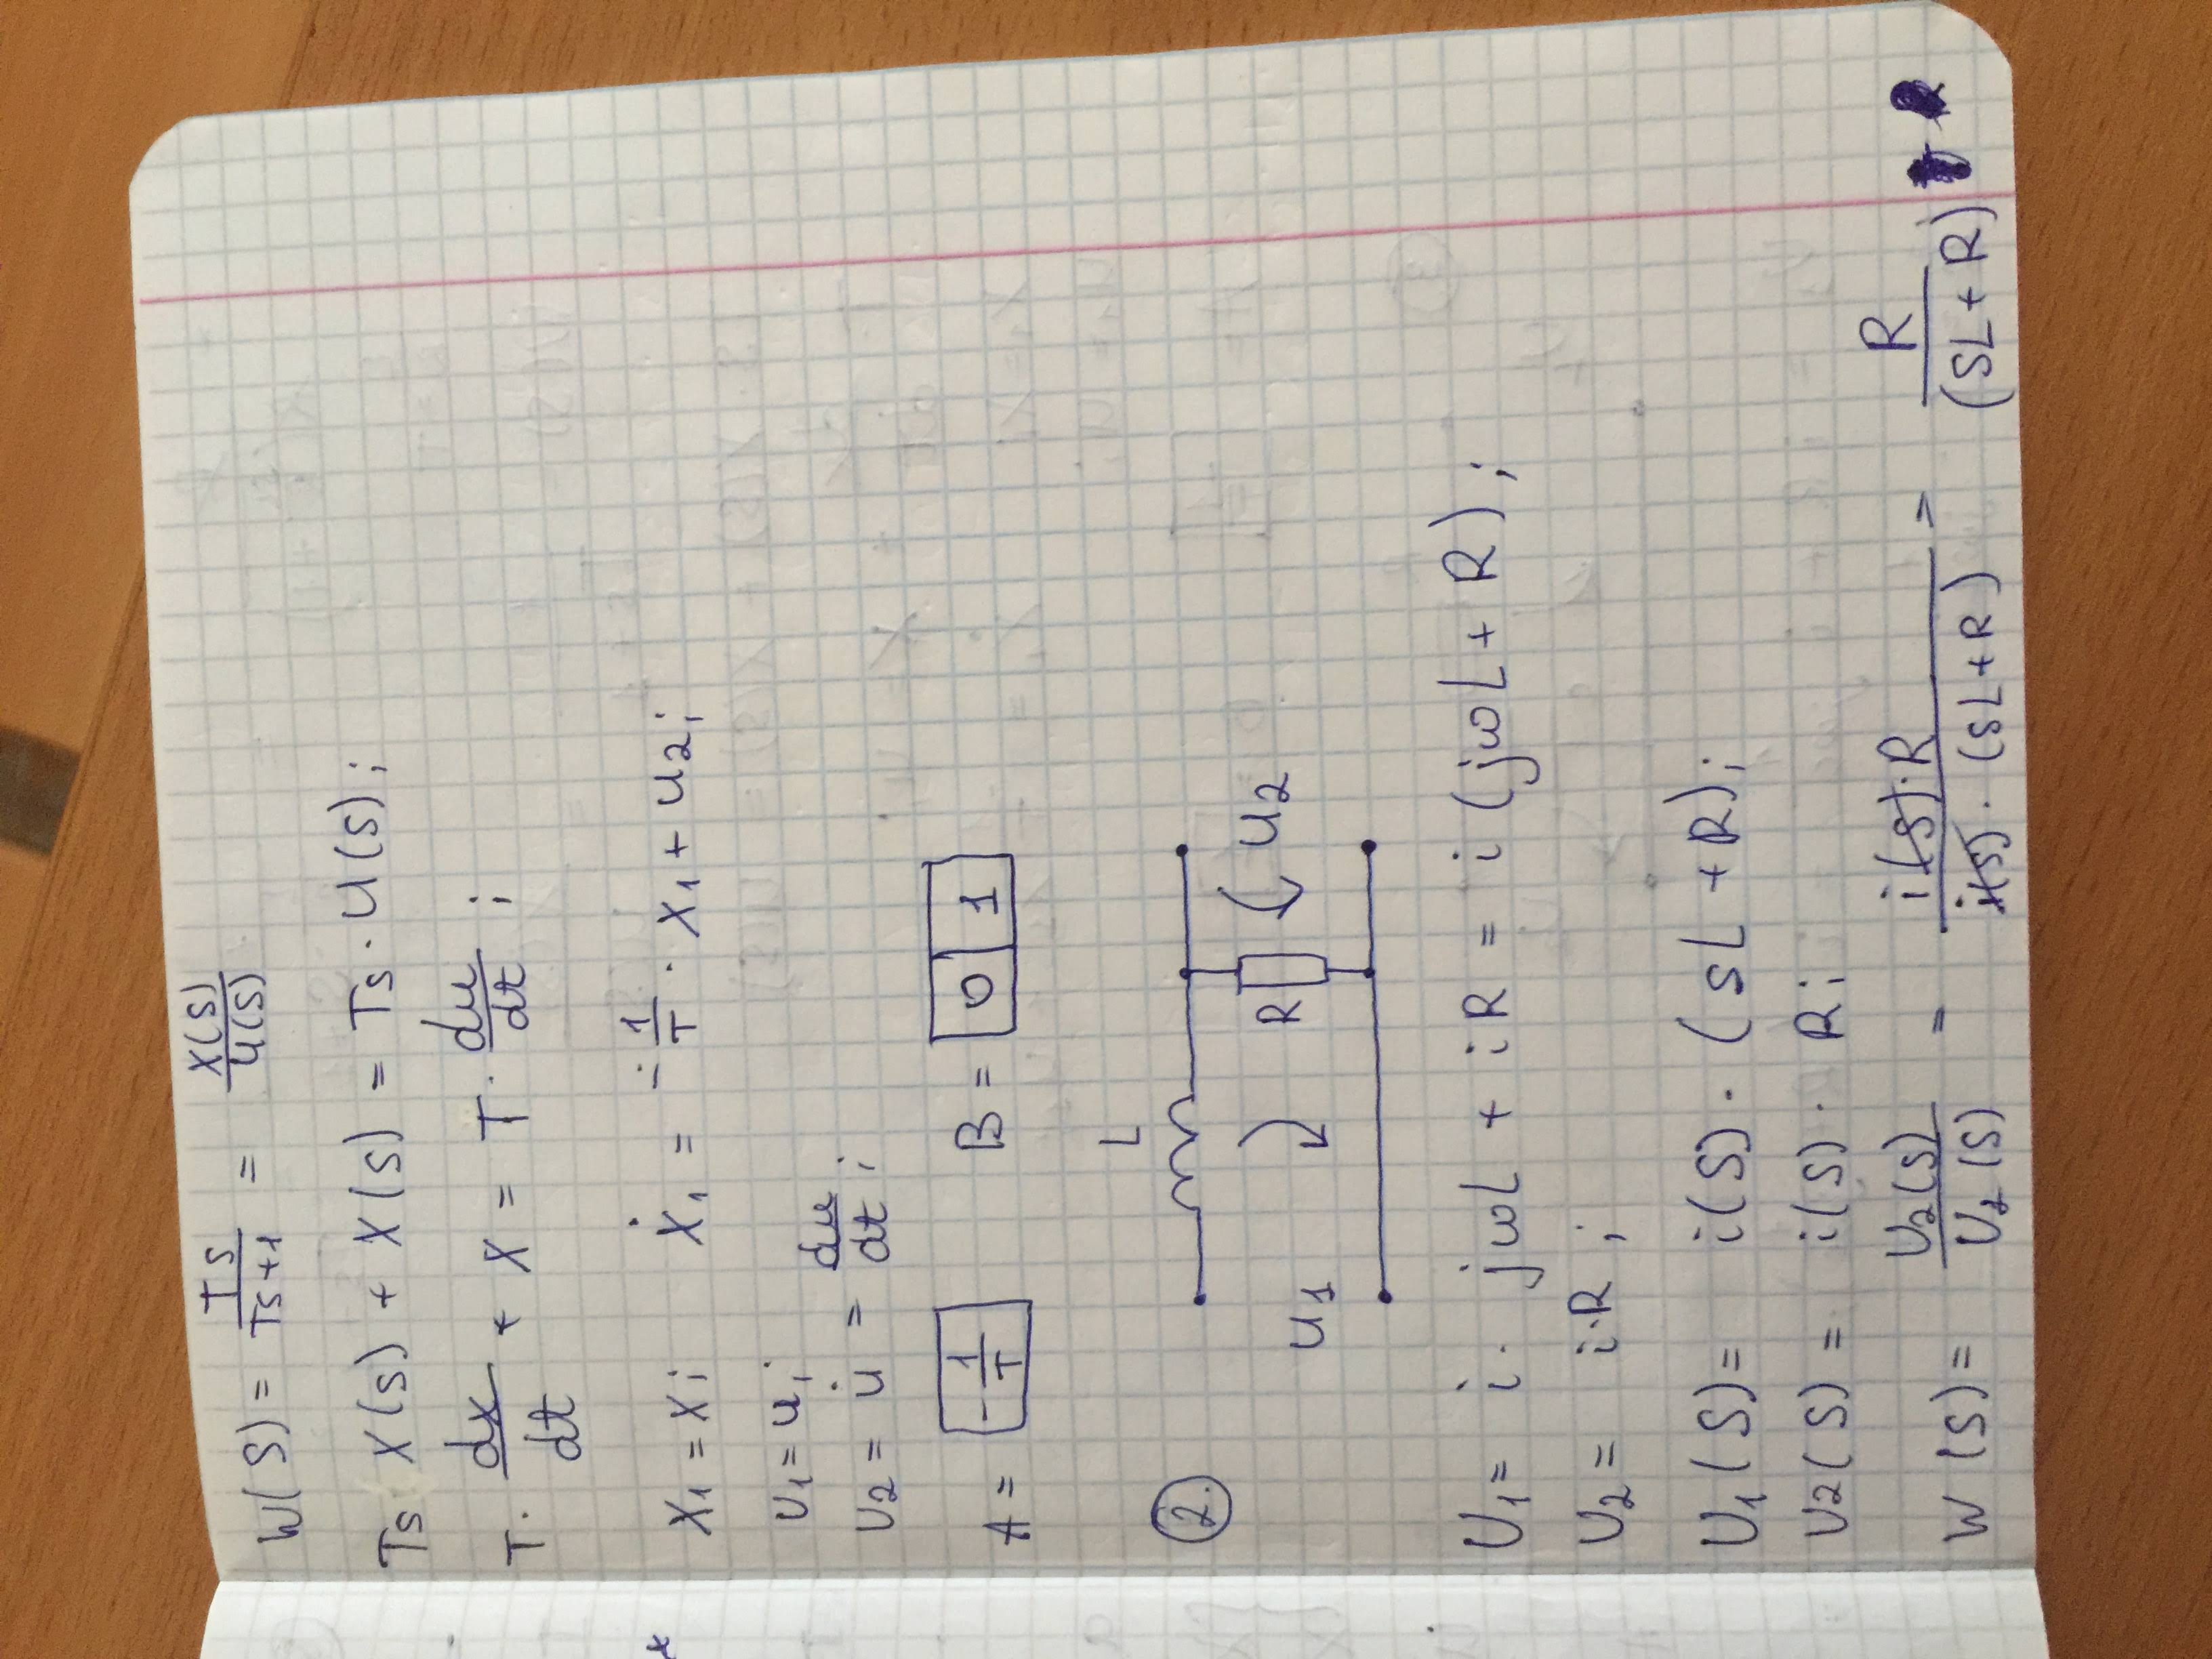 W(S) = TS / TS+1 = X(S) / U(S)
Ts X(s) + X(s) = Ts · U(s);
T · dx/dt + X = T · du/dt ;
X1 = X; Ẋ1 = -1/T · X1 + U2;
U1 = u;
U2 = u̇ = du/dt ;
A = -1/T B = 0 1
L
2.
R U2
U1
U1 = i · jωL + iR = i (jωL + R) ;
U2 = i·R ;
U1(S) = i(S) · (sL + R);
U2(S) = i(S) · R;
W(S) = U2(S) / U2(S) = i(S)·R / i(S) · (SL+R) = R / (SL+R)